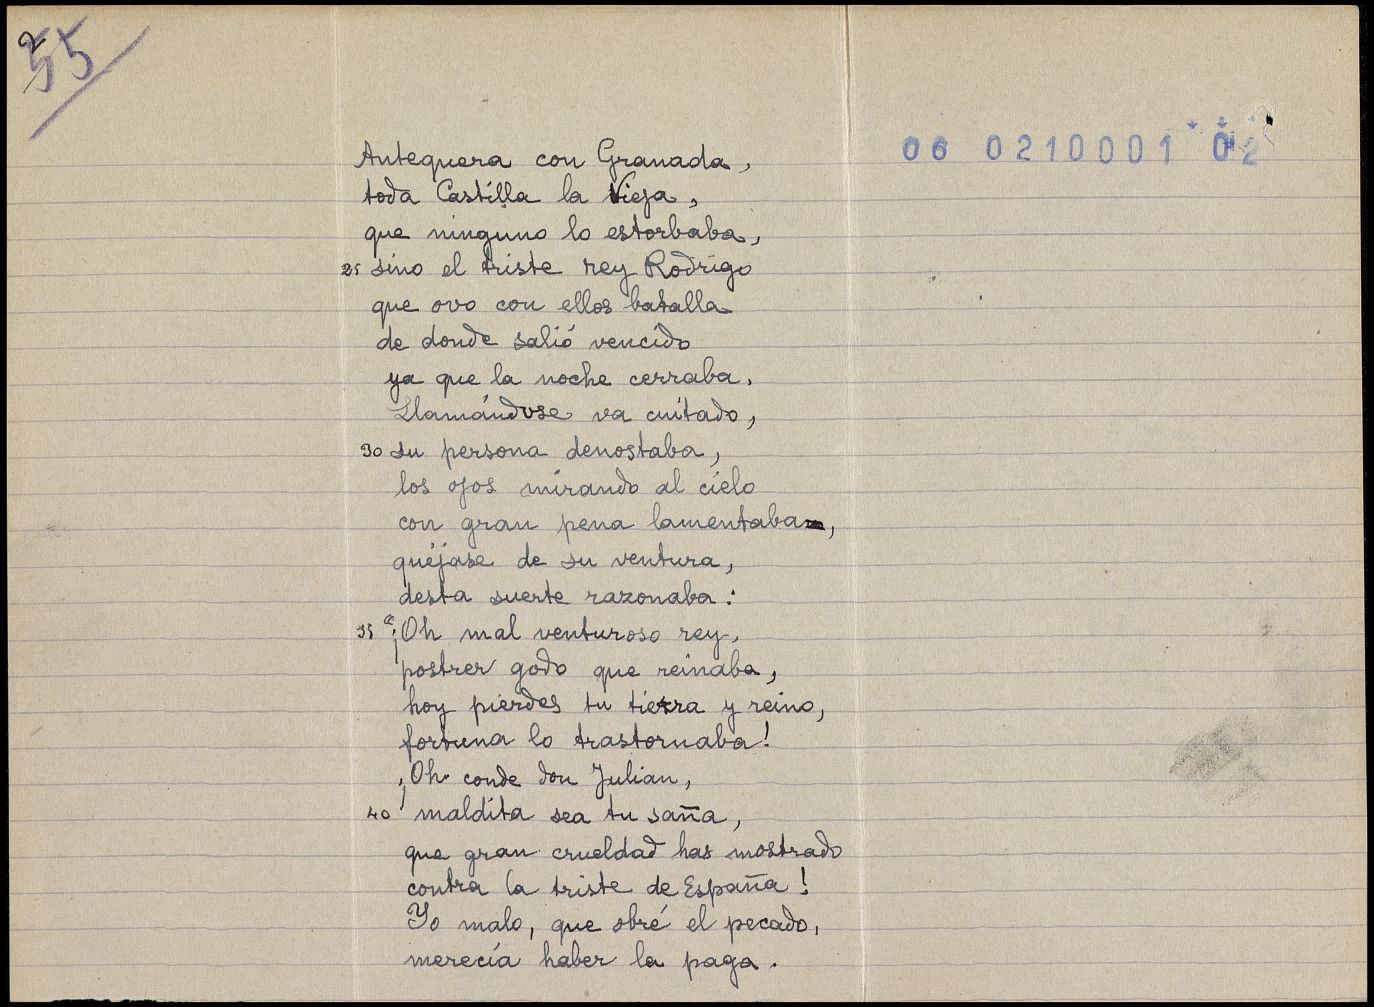 55
2
06 0210001 02
Antequera con Granada,
toda Castilla la Vieja,
que ninguno lo estorbaba,
25 sino el triste rey Rodrigo
que ovo con ellos batalla
de donde salió vencido
ya que la noche cerraba.
Llamándose va cuitado,
30 su persona denostaba,
los ojos mirando al cielo
con gran pena lamentaba,
quéjase de su ventura,
desta suerte razonaba:
35 «¡Oh mal venturoso rey,
postrer godo que reinaba,
hoy pierdes tu tierra y reino,
fortuna lo trastornaba!
¡Oh conde don Julian,
40 maldita sea tu saña,
que gran crueldad has mostrado
contra la triste de España!
Yo malo, que obré el pecado,
merecía haber la paga.